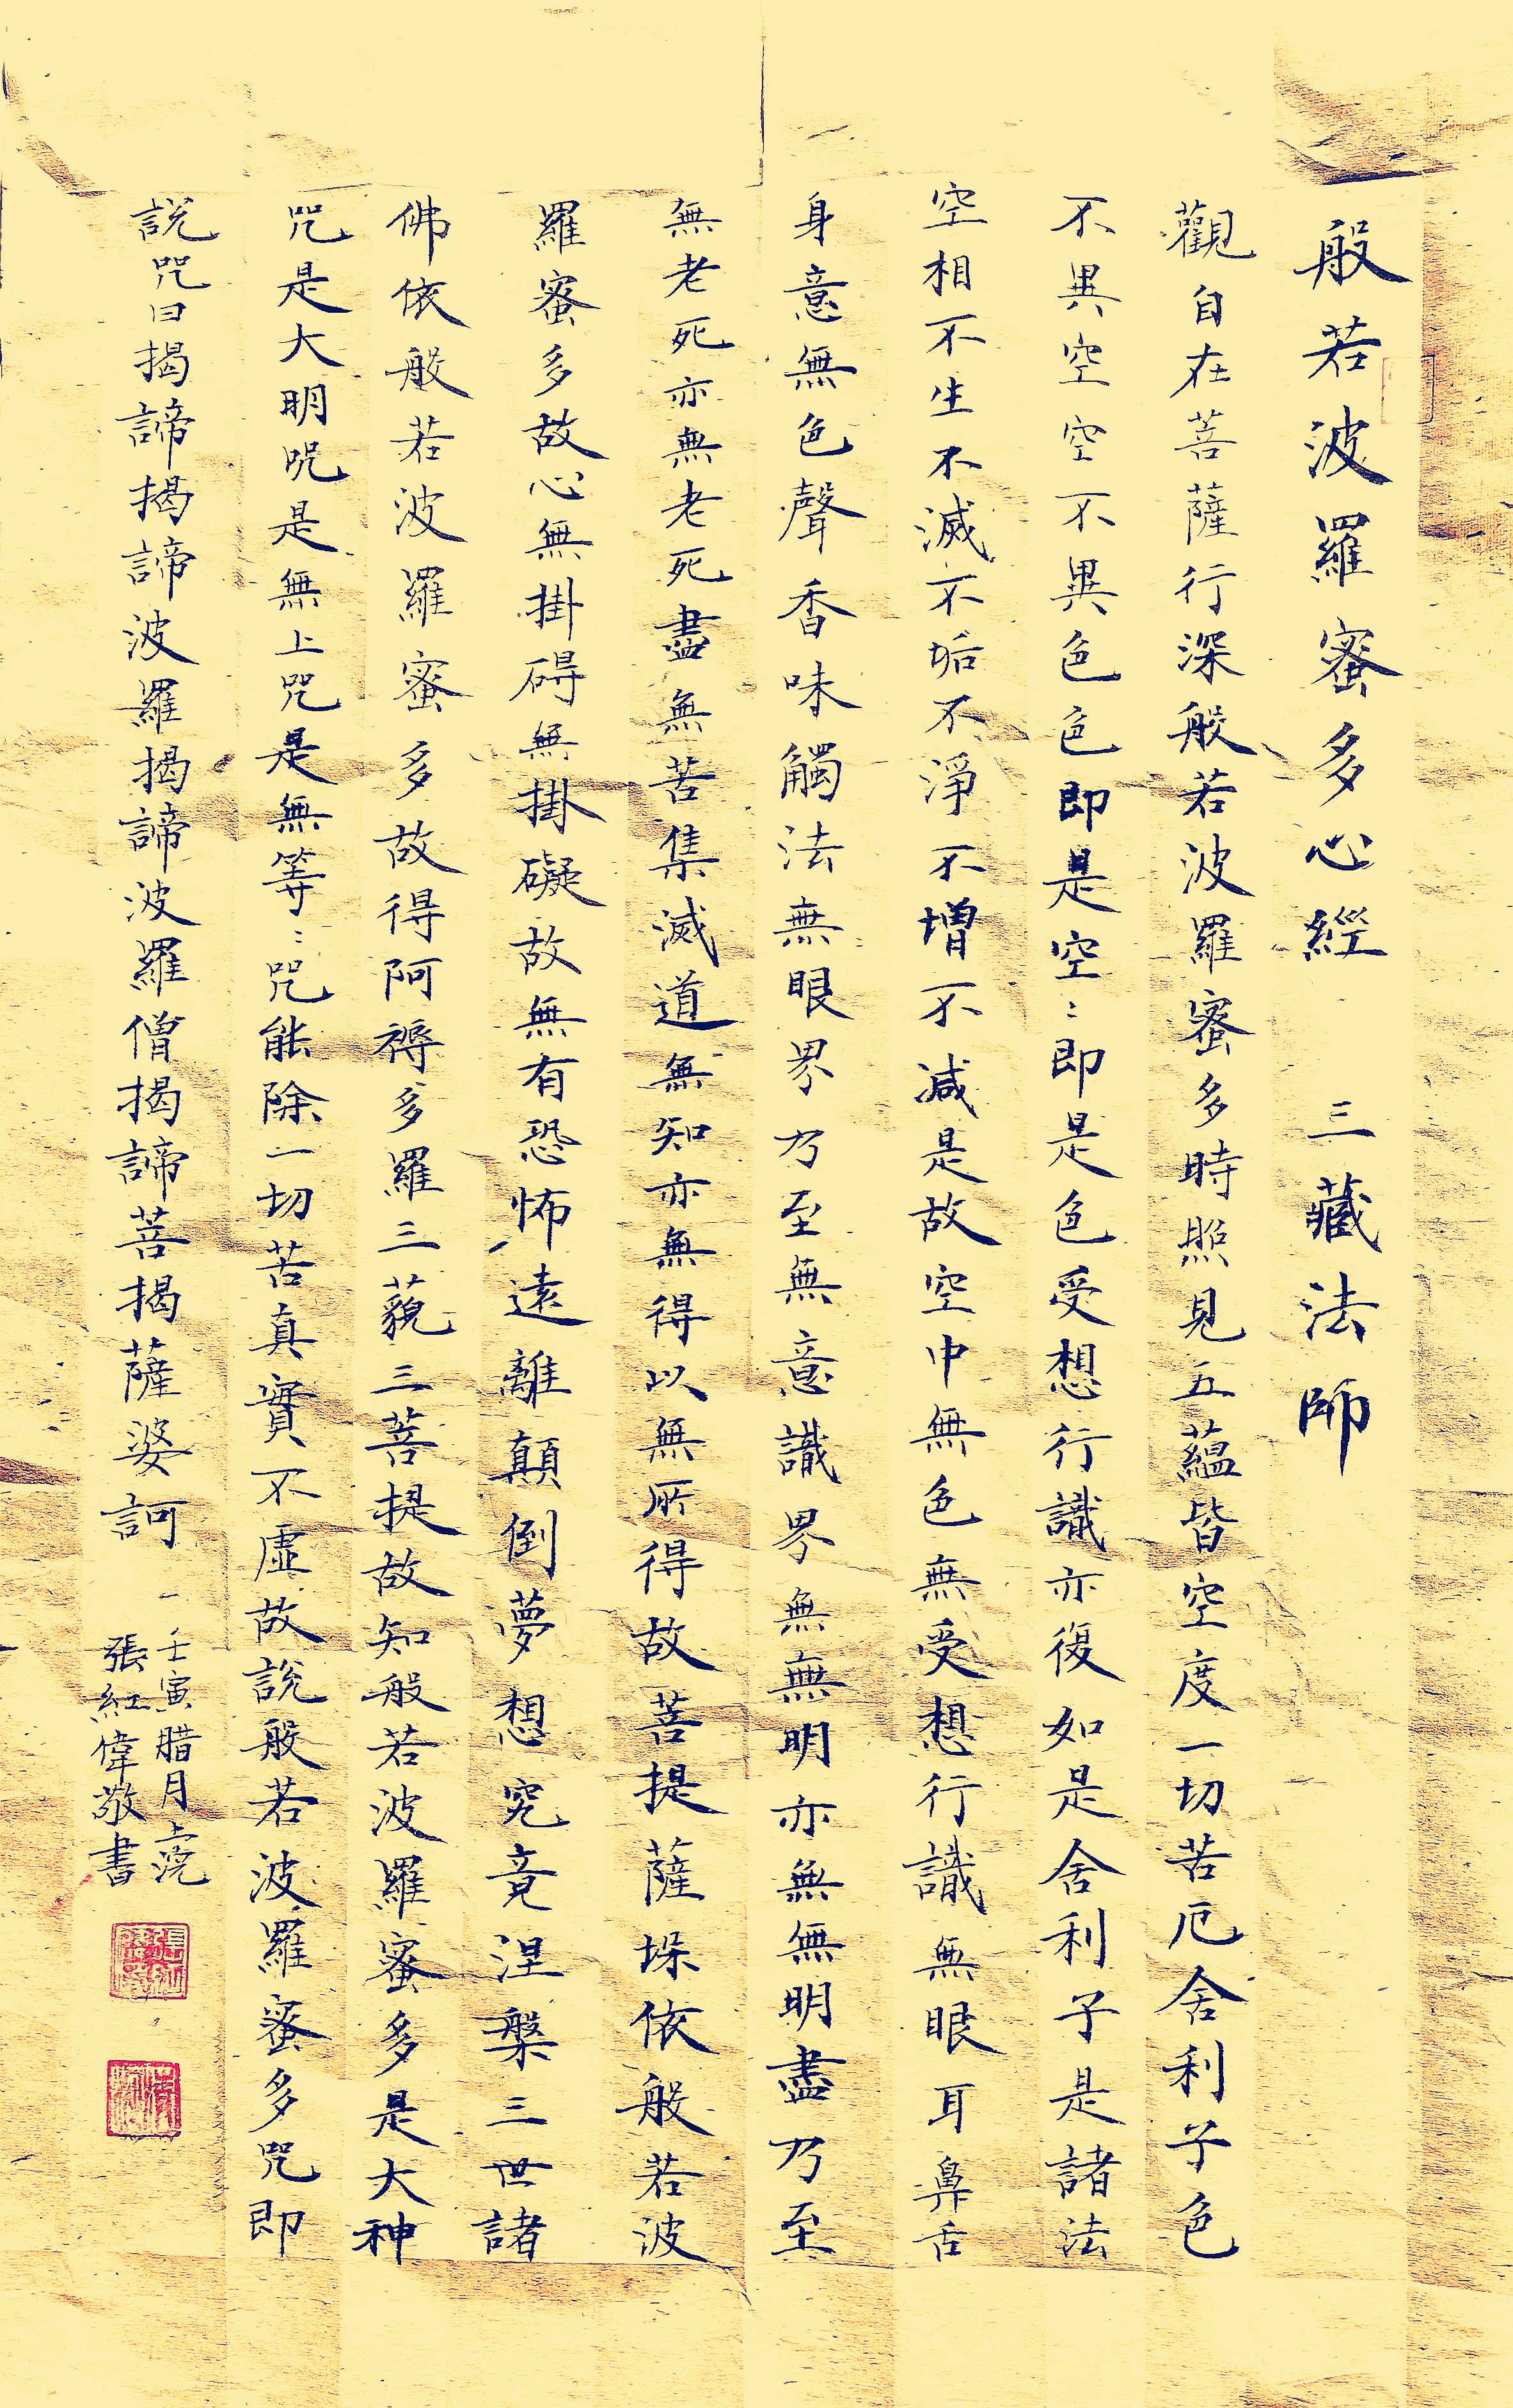 般若波羅蜜多心經 三藏法師
觀自在菩薩行深般若波羅蜜多時照見五蘊皆空度一切苦厄舍利子色
不異空空不異色色即是空:即是色受想行識亦復如是舍利子是諸法
空相不生不滅不垢不淨不增不減是故空中無色無受想行識無眼耳鼻舌
身意無色聲香味觸法無眼界乃至無意識界無無明亦無無明盡乃至
無老死亦無老死盡無苦集滅道無知亦無得以無所得故菩提薩埵依般若波
羅蜜多故心無掛碍無掛礙故無有恐怖遠離顛倒夢想究竟涅槃三世諸
佛依般若波羅蜜多故得阿褥多羅三藐三菩提故知般若波羅蜜多是大神
咒是大明呪是無上咒是無等:咒能除一切苦真實不虛故說般若波羅蜜多咒即
說咒曰揭諦揭諦波羅揭諦波羅僧揭諦菩揭薩婆訶
壬寅腊月上浣
張紅偉敬書